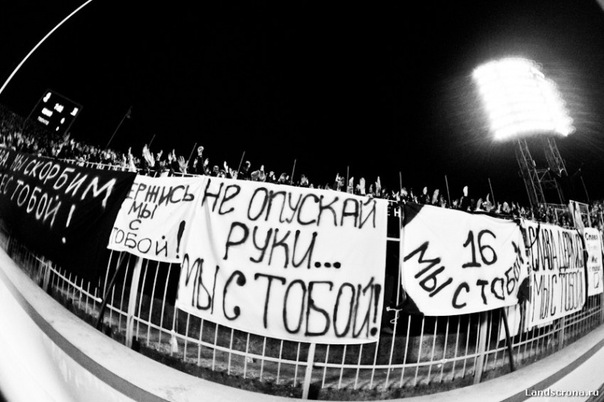 МЫ СКОРБИМ
ВМЕСТЕ С ТОБОЙ!
ДЕРЖИСЬ
МЫ
С
ТОБОЙ!
НЕ ОПУСКАЙ
РУКИ...
МЫ С ТОБОЙ!
16
МЫ С ТОБОЙ
МЫ С ТОБОЙ!
Landscrona.ru